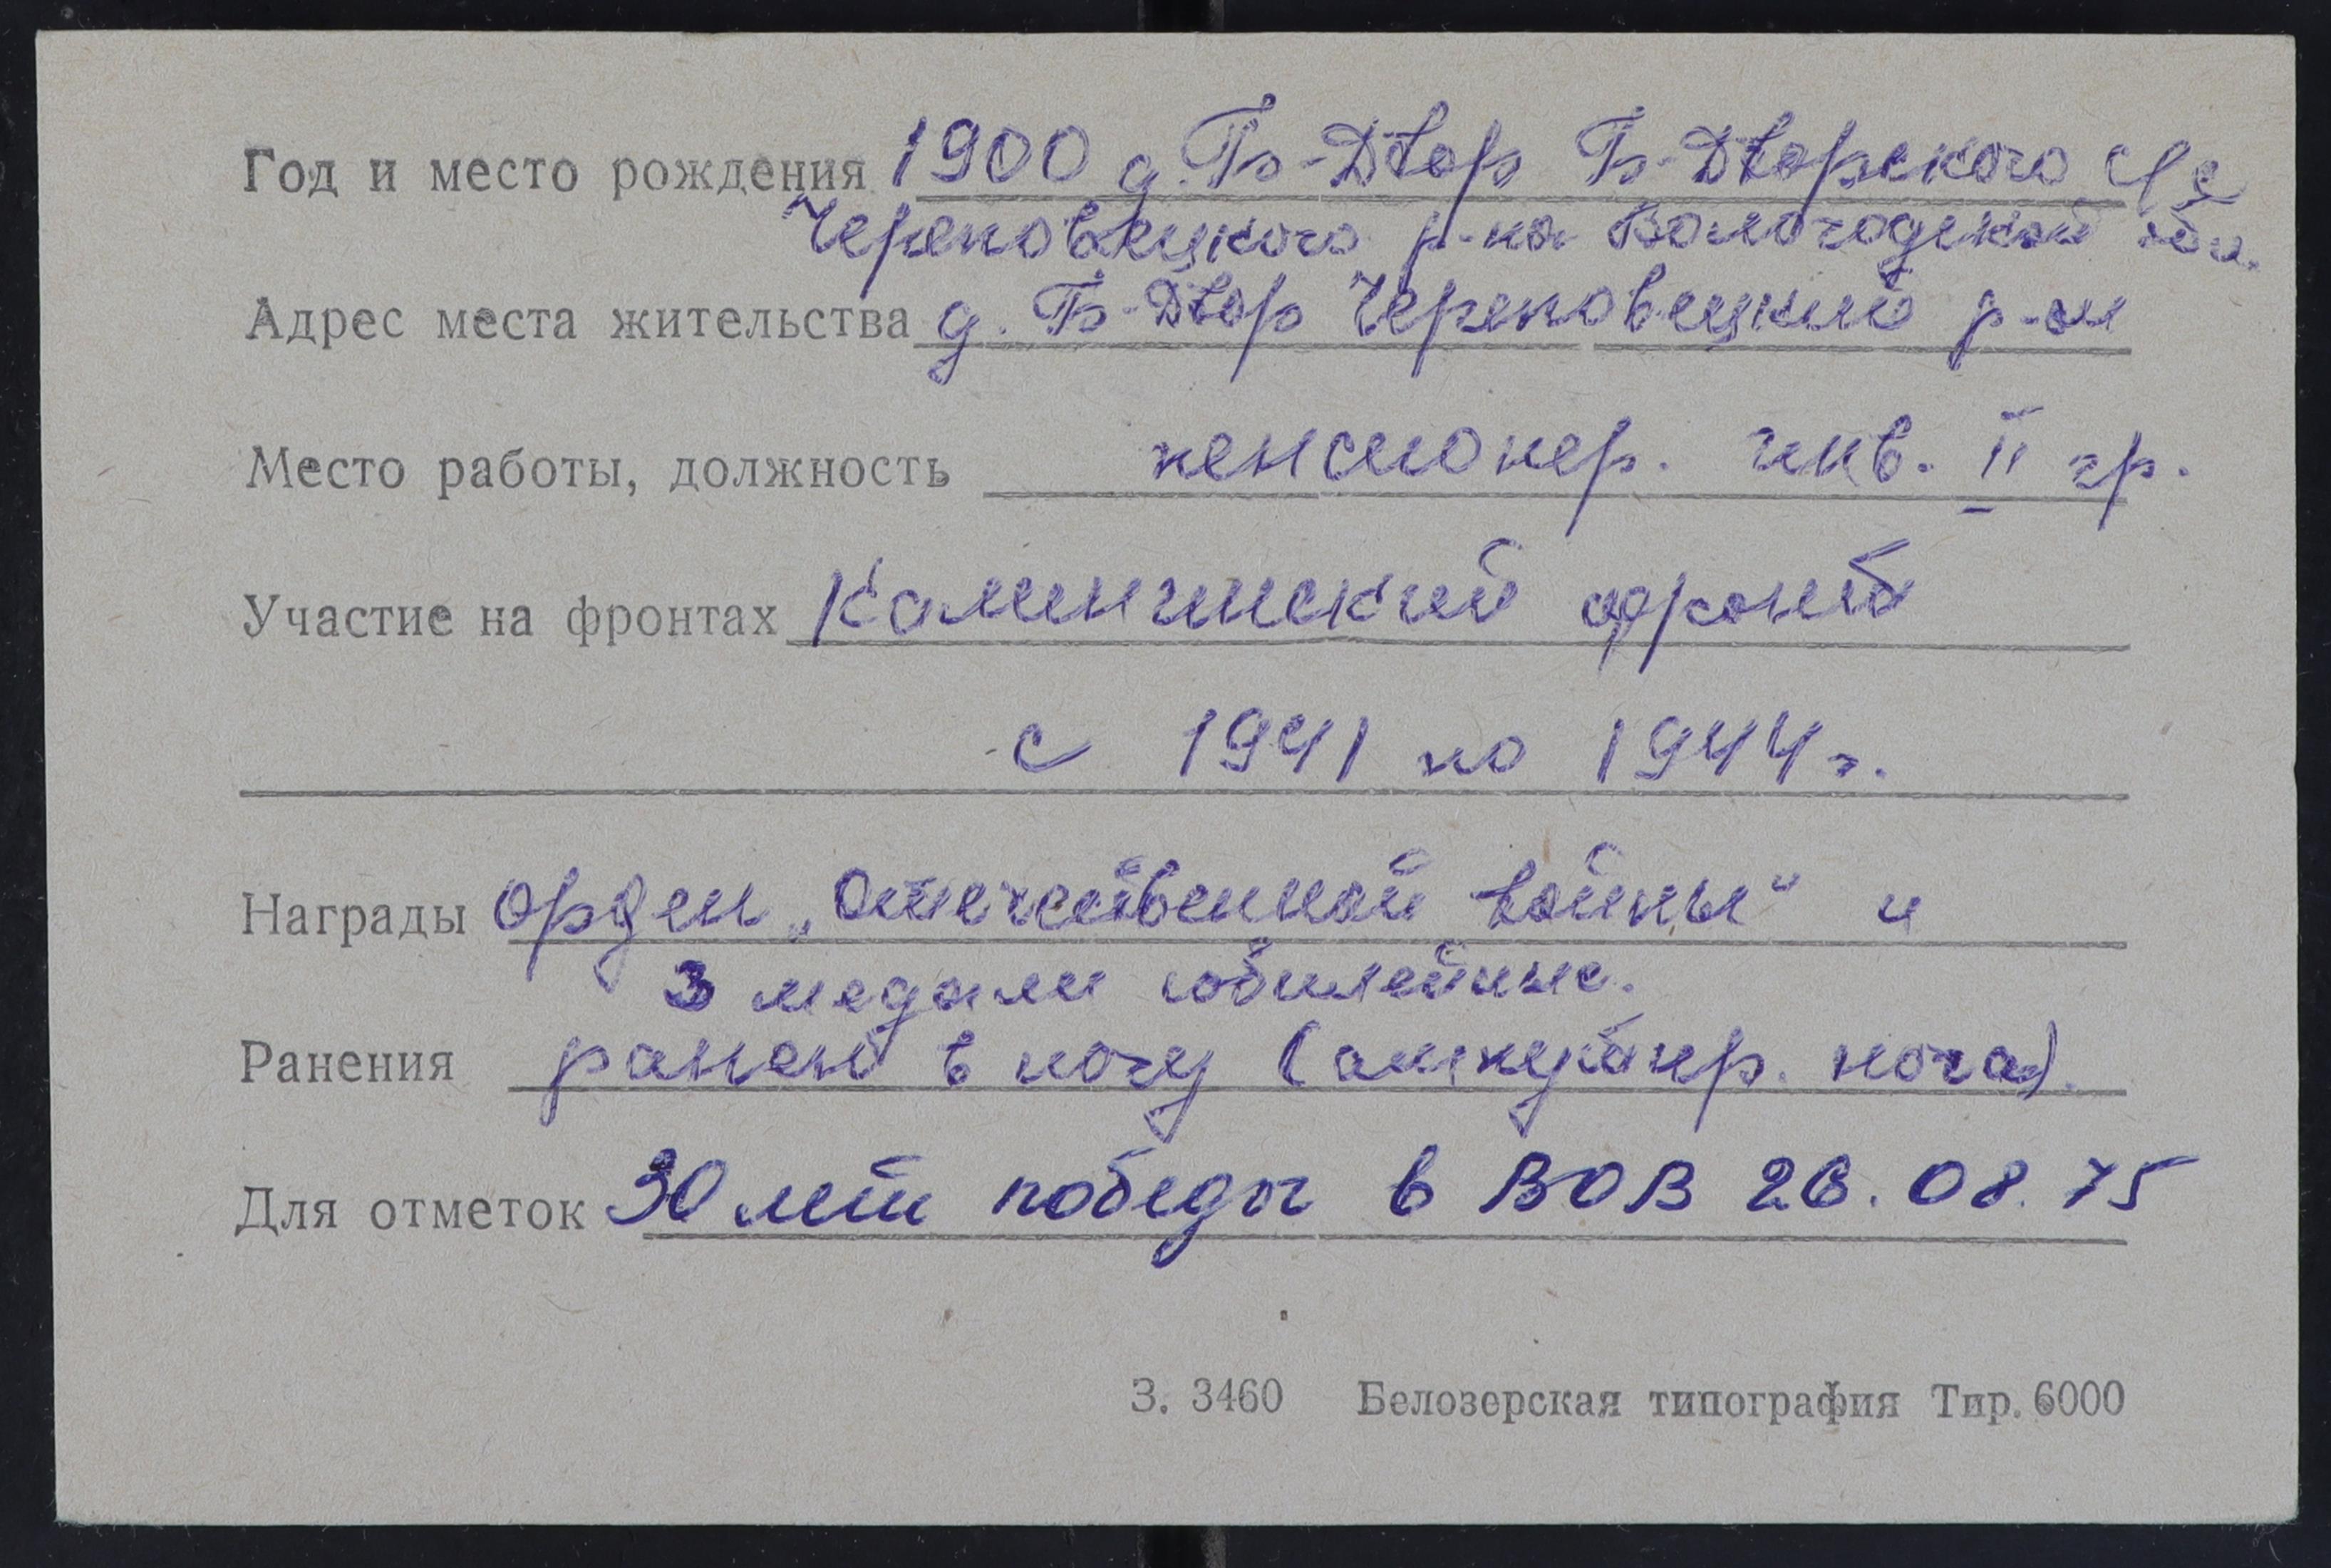 Год и место рождения 1900 д. Б-Двор Б-Дворского с/с
Череповецкого р-на Вологодской обл.
Адрес места жительства д. Б-Двор Череповецкий р-он
Место работы, должность пенсионер. инв. II гр.
Участие на фронтах Калининский фронт
с 1941 по 1944 г.
Награды орден „Отечественной войны" и
3 медали юбилейные.
Ранения ранен в ногу (ампутир. нога).
Для отметок 30 лет победы в ВОВ 26.08.75
З. 3460 Белозерская типография Тир. 6000